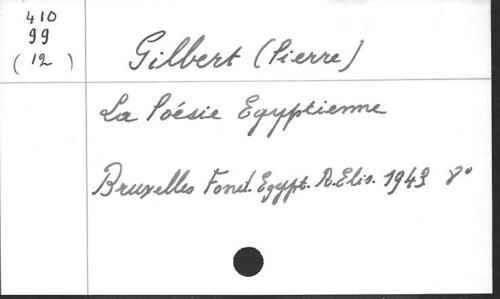 410
99
( 12 )
Gilbert (Pierre)
La Poésie Egyptienne
Bruxelles Fond. Egypt. R. Elis. 1943 8°